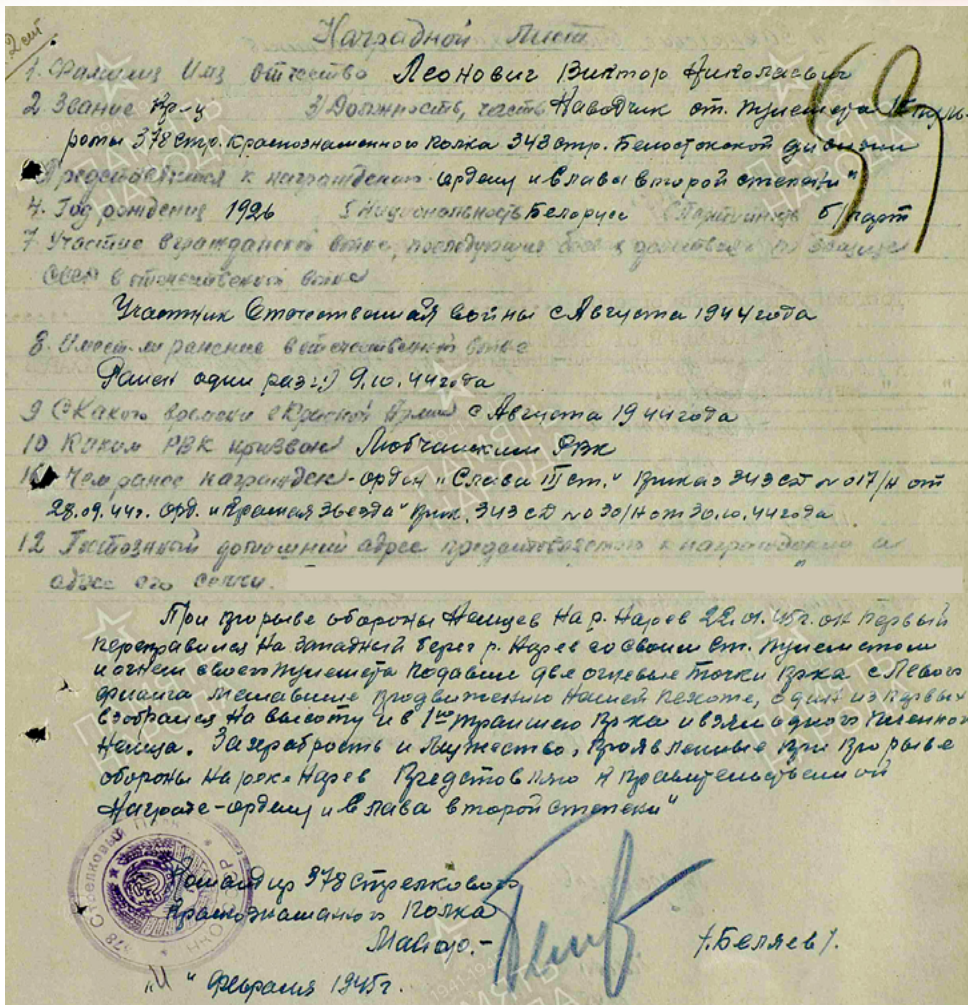 2 ст
Наградной лист
1. Фамилия Имя Отчество Леонович Виктор Николаевич
2 Звание Кр-ц 3) Должность, часть Наводчик ст. пулемета 1й пуль-
роты 378 стр. Краснознаменного полка 343 стр. Белостокской дивизии
Представляется к награждению - ордену „Слава второй степени"
4. Год рождения 1926 5 Национальность Белорусс 6 Партийность б/парт
7 Участие в гражданской войне, последующие бои и действиях по защите
СССР в отечественной войне
Участник Отечественная войны с Августа 1944 года
8. Имеет-ли ранение в отечественной войне
Ранен один раз:1) 9.10.44 года
9 С какого времени в Красной Армии с Августа 1944 года
10 Каким РВК призван Любчанским РВК
Чем ранее награжден - орден „Слава III ст." Приказ 343 СД № 017/н от
28.09.44г. Орд. „Красная Звезда" Прик. 343 СД № 30/н от 30.10.44 года
12 Постоянный домашний адрес представляемого к награждению и
адрес его семьи.
При прорыве обороны Немцев на р. Нарев 22.01.45г. он первый
переправился на западный берег р. Нарев со своим Ст. пулеметом
и огнем своего пулемета подавил две огневые точки врка с левого
фланга мешавшие продвижению нашей пехоте, один из первых
взобрался на высоту и в 1ую траншею врка и взял одного пленного
Немца. За храбрость и мужество, проявленные при прорыве
обороны на реке Нарев представляю к правительственной
Награде - ордену „Слава второй степени"
378 Стрелковый
НКО СССР
Командир 378 Стрелкового
Краснознаманого Полка
Майор. - /.Беляев/.
„11" февраля 1945г.
ПАМЯТЬ НАРОДА